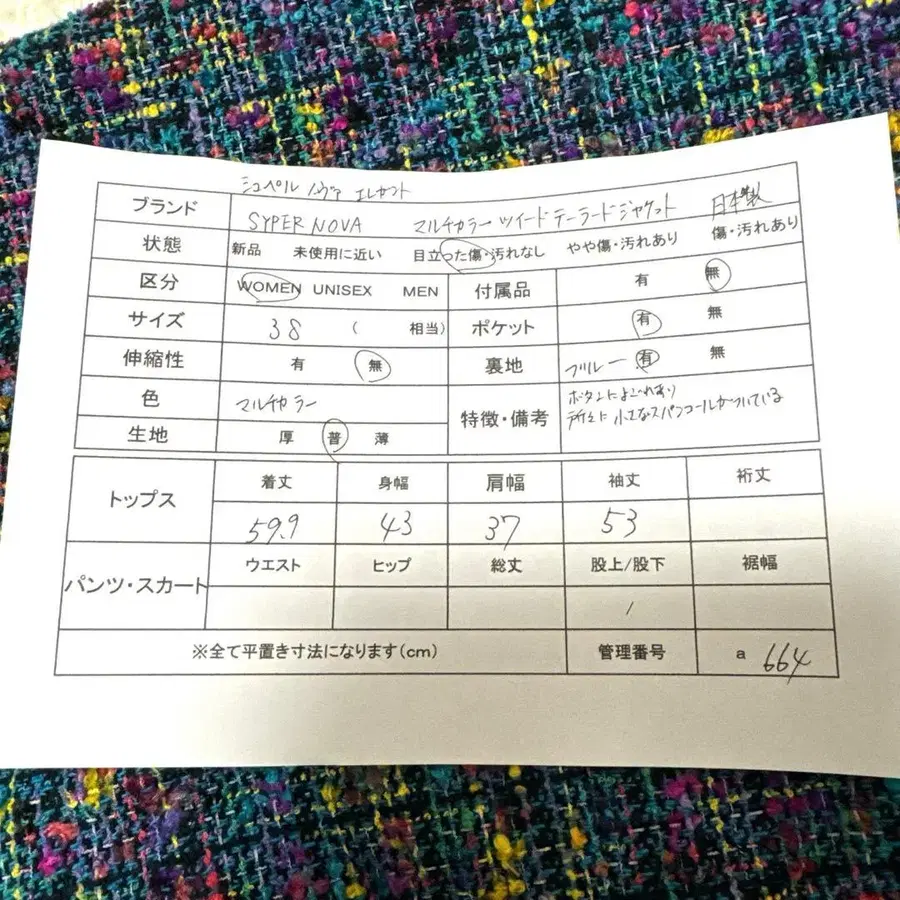 シュペル ノヴァ エレガント
ブランド SYPER NOVA マルチカラー ツイード テーラードジャケット 日本製
状態 新品 未使用に近い 目立った傷・汚れなし やや傷・汚れあり 傷・汚れあり
区分 WOMEN UNISEX MEN 付属品 有 無
サイズ 38 ( 相当) ポケット 有 無
伸縮性 有 無 裏地 有 無
色 マルチカラー 特徴・備考 ボタンによごれあり
所々に 小さなスパンコールがついている
生地 厚 普 薄
トップス 着丈 身幅 肩幅 袖丈 裄丈
59.9 43 37 53
パンツ・スカート ウエスト ヒップ 総丈 股上/股下 裾幅
/
※全て平置き寸法になります(cm) 管理番号 a 664